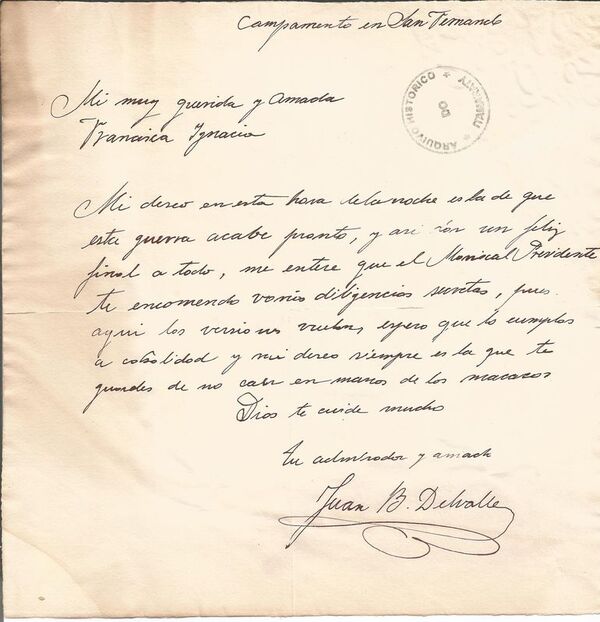 Campamento en San Fernando
Mi muy querida y Amada
Francisca Ignacia
ARQUIVO HISTORICO * ITAMARATY *
Mi deseo en esta hora de la noche es la de que
esta guerra acabe pronto, y asi con un feliz
final a todo, me entere que el Mariscal Presidente
te encomendo varias diligencias secretas, pues
aqui los versiones vuelan, espero que lo cumplas
a cabalidad y mi deseo siempre es la que te
guardes de no caer en manos de los macacos
Dios te cuide mucho
tu admirador y amado
Juan B. Delvalle